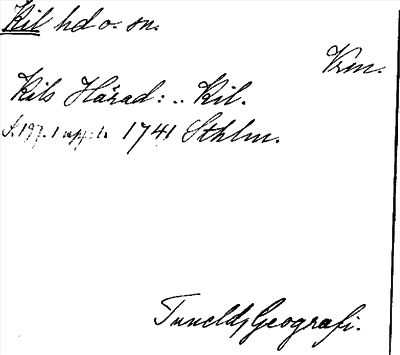 Kil hd o. sn.
Vrm.
Kils Härad: .. Kil.
s. 197. 1 uppl. 1741 Sthlm.
Tunelds Geografi.